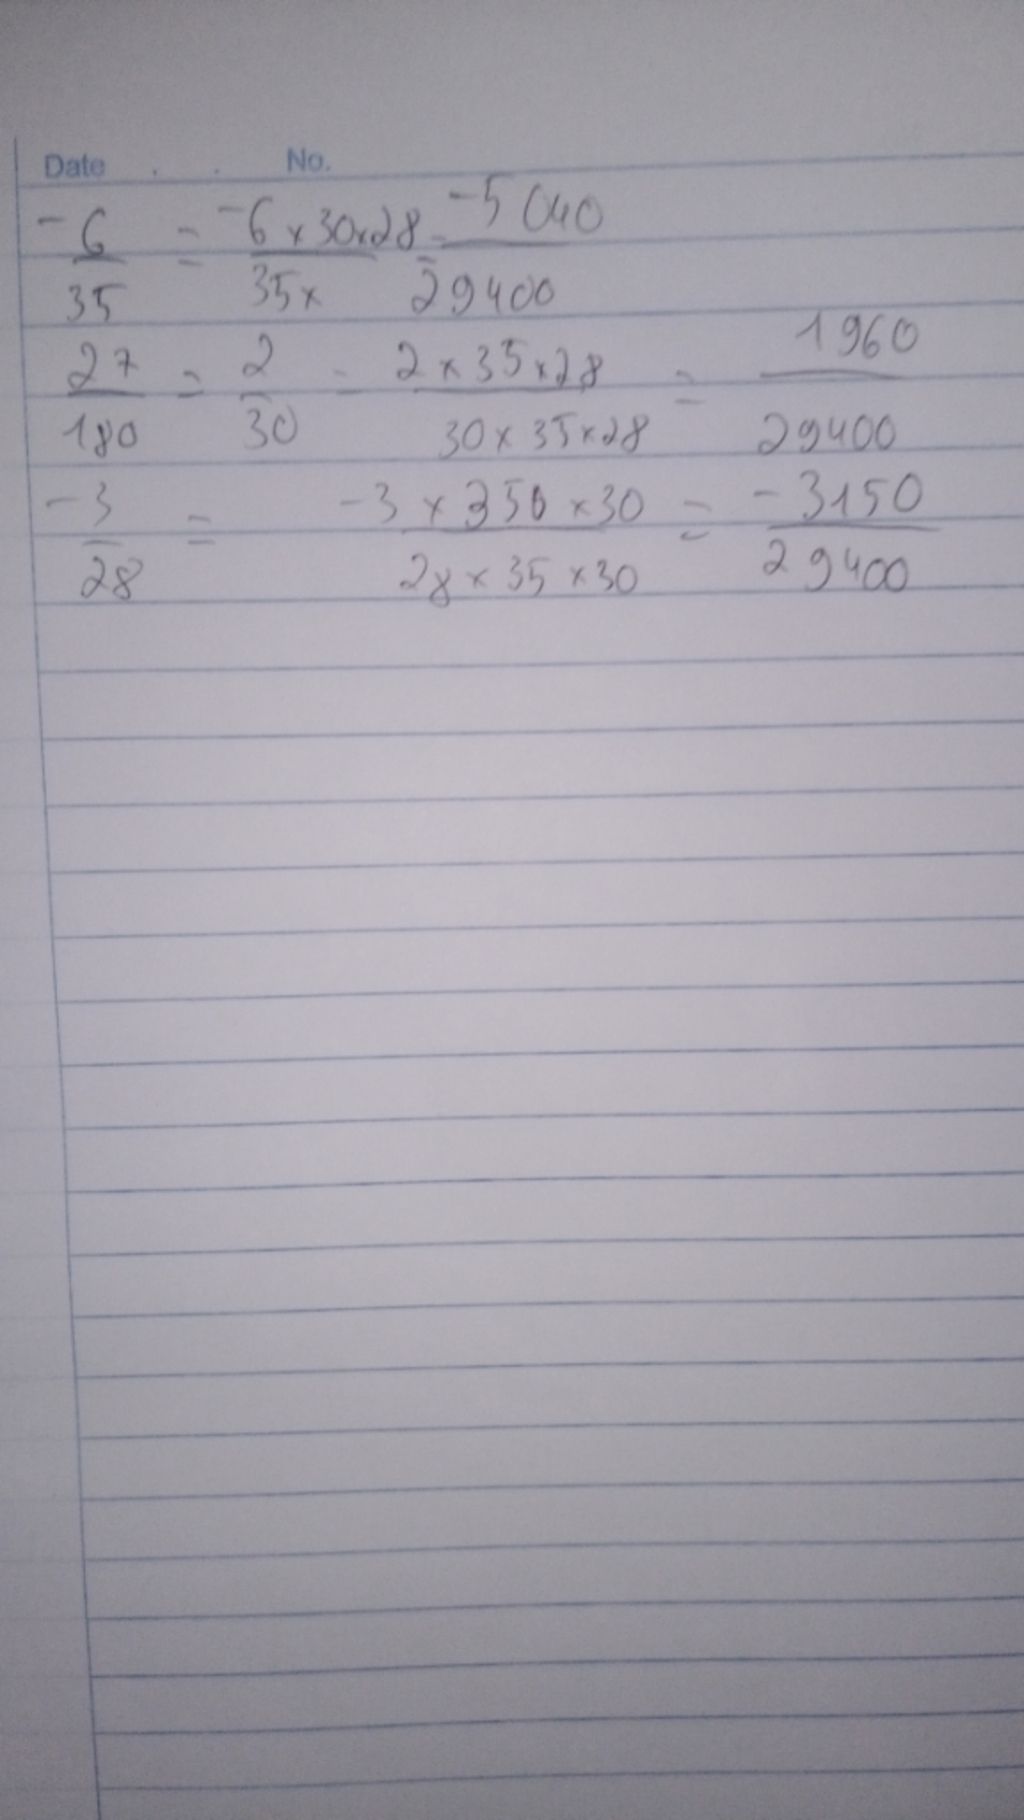 Date . . No.
-6/35 = -6 x 30 x 28/35 x = -5040/29400
27/180 = 2/30 = 2 x 35 x 28/30 x 35 x 28 = 1960/29400
-3/28 = -3 x 350 x 30/28 x 35 x 30 = -3150/29400